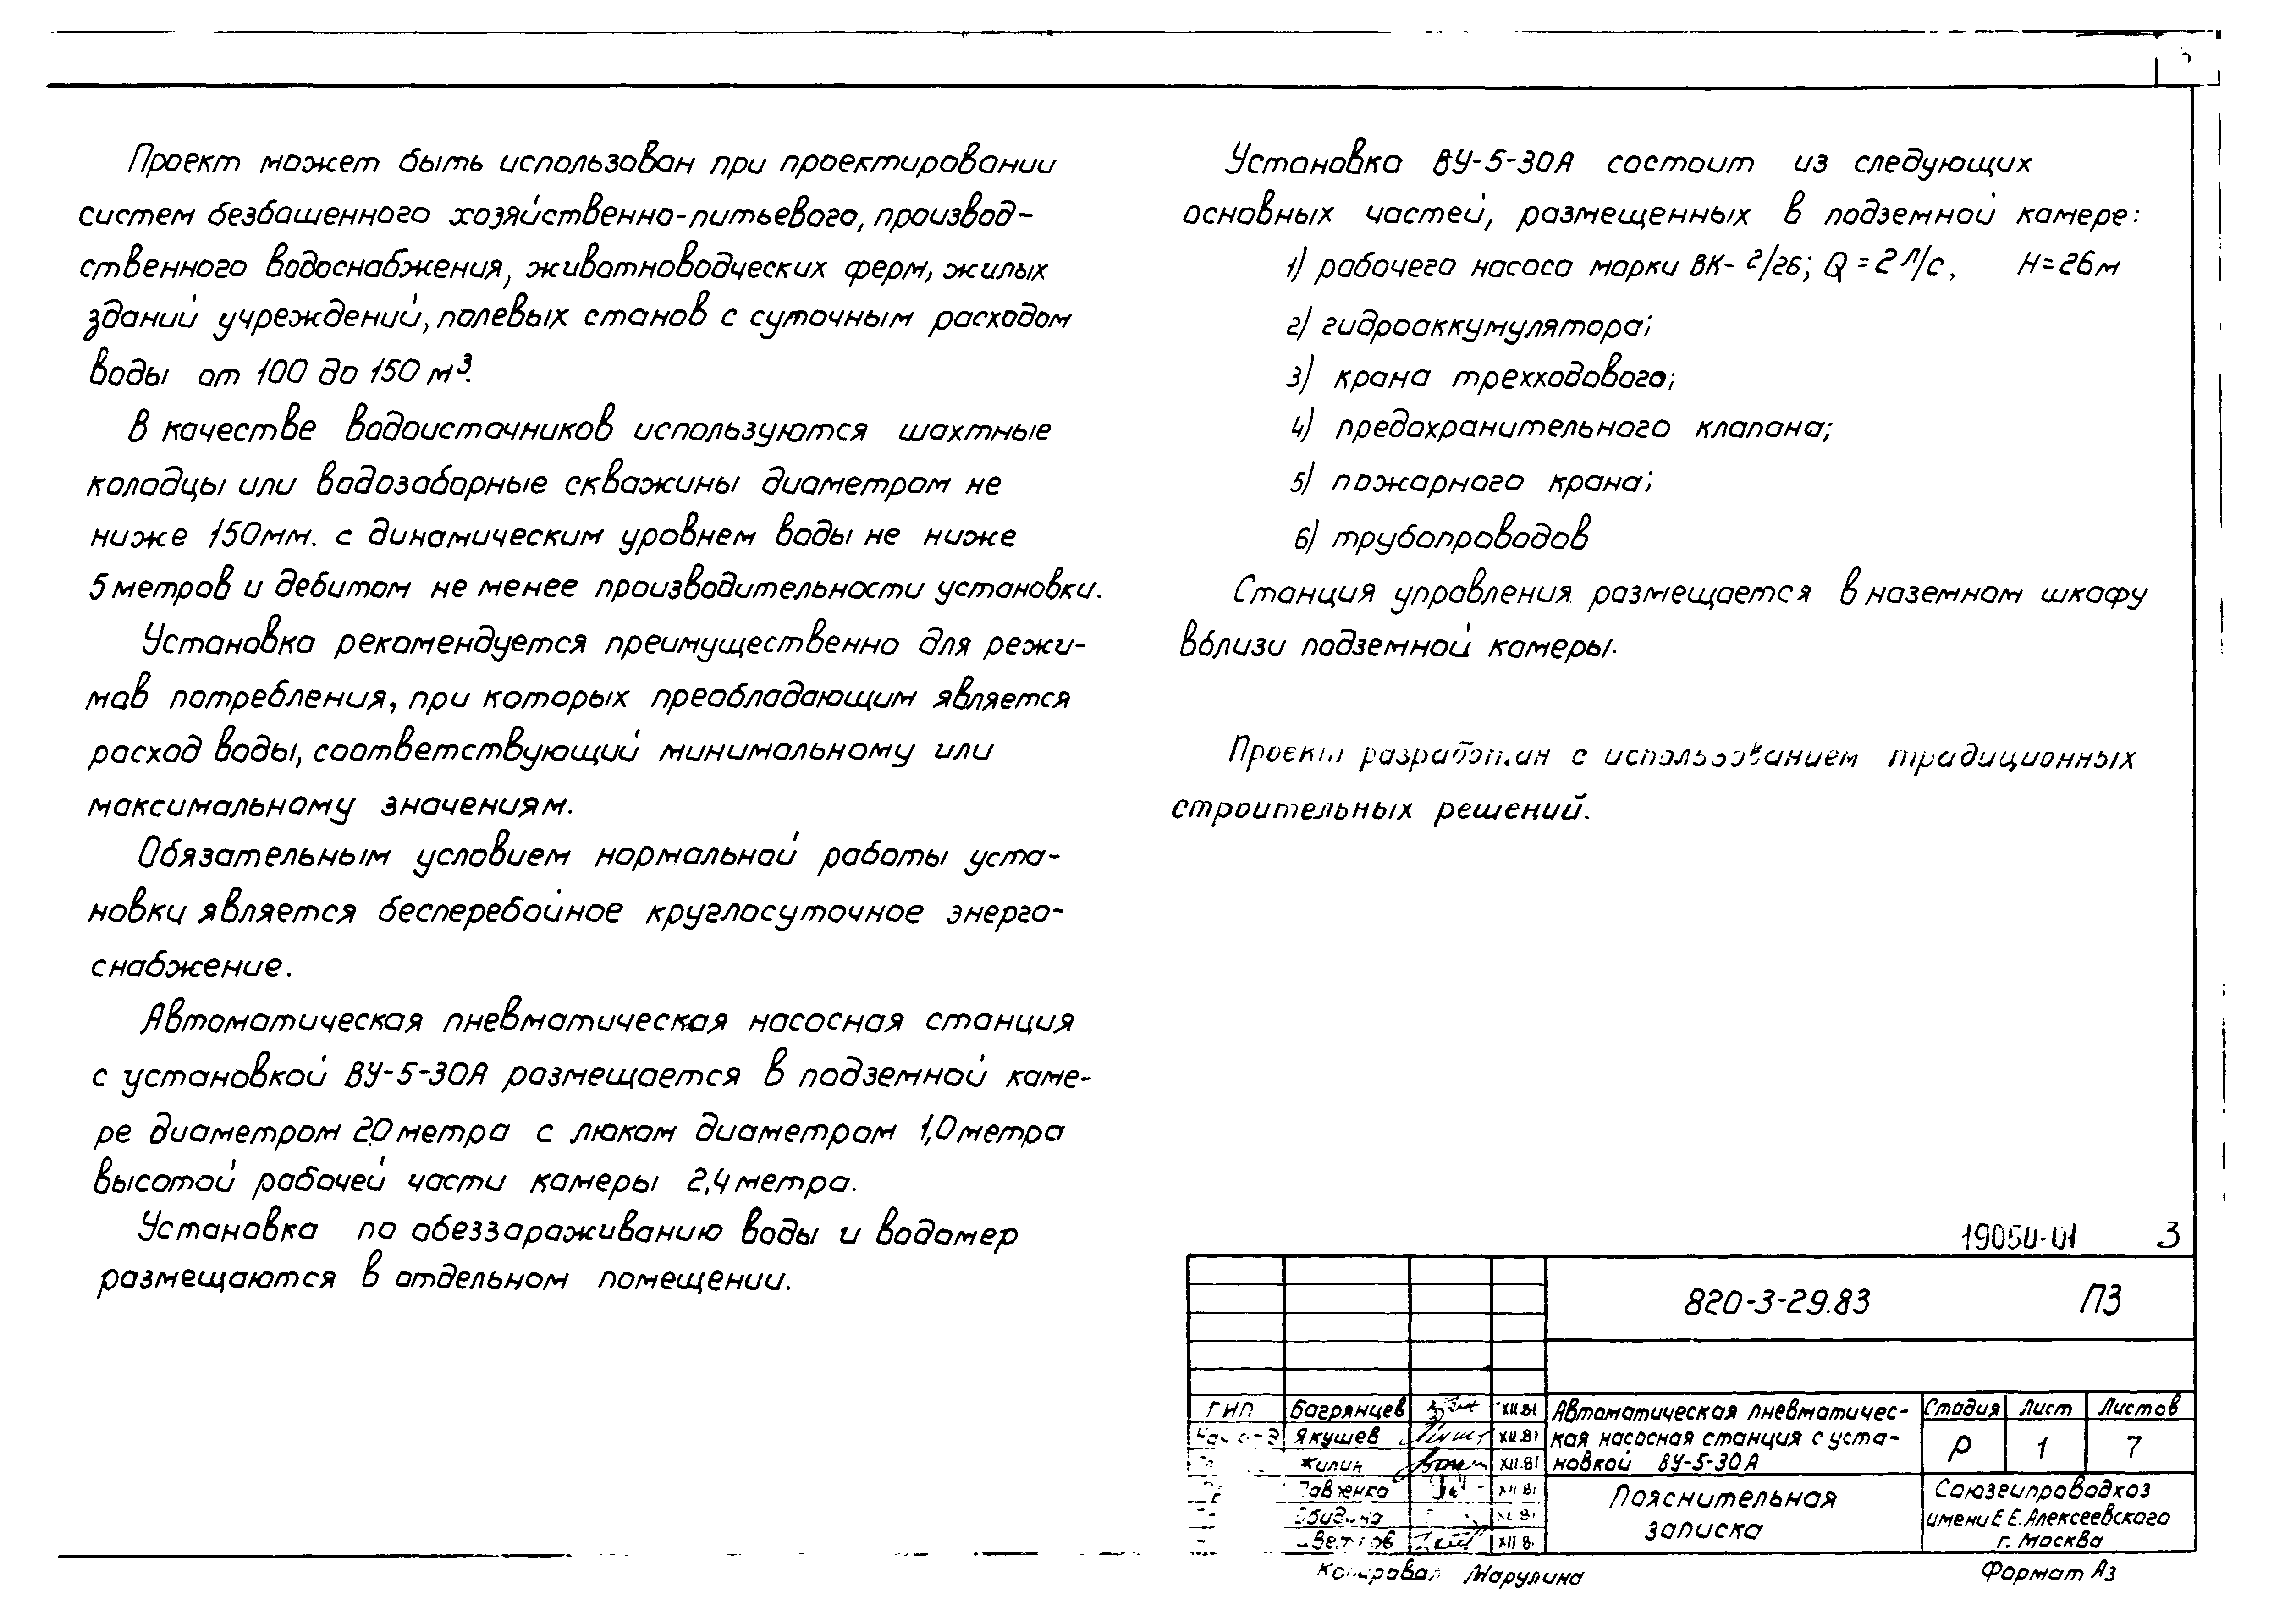 Проект может быть использован при проектировании
систем безбашенного хозяйственно-питьевого, производ-
ственного водоснабжения, животноводческих ферм, жилых
зданий учреждений, полевых станов с суточным расходом
воды от 100 до 150 м³.
В качестве водоисточников используются шахтные
колодцы или водозаборные скважины диаметром не
ниже 150мм. с динамическим уровнем воды не ниже
5 метров и дебитом не менее производительности установки.
Установка рекомендуется преимущественно для режи-
мов потребления, при которых преобладающим является
расход воды, соответствующий минимальному или
максимальному значениям.
Обязательным условием нормальной работы уста-
новки является бесперебойное круглосуточное энерго-
снабжение.
Автоматическая пневматическая насосная станция
с установкой ВУ-5-30А размещается в подземной каме-
ре диаметром 2,0 метра с люком диаметром 1,0 метра
высотой рабочей части камеры 2,4 метра.
Установка по обеззараживанию воды и водомер
размещаются в отдельном помещении.
Установка ВУ-5-30А состоит из следующих
основных частей, размещенных в подземной камере:
1) рабочего насоса марки ВК-2/26; Q=2 л/с, H=26м
2) гидроаккумулятора;
3) крана трехходового;
4) предохранительного клапана;
5) пожарного крана;
6) трубопроводов
Станция управления размещается в наземном шкафу
вблизи подземной камеры.
Проект разработан с использованием традиционных
строительных решений.
19050-01 3
820-3-29.83 ПЗ
ГИП Багрянцев XII.81
Якушев XII.81
Жилин XII.81
XII.81
XII.81
XII.8
Автоматическая пневматичес-
кая насосная станция с уста-
новкой ВУ-5-30А
Стадия Лист Листов
Р 1 7
Пояснительная
записка
Союзгипроводхоз
имени Е.Е.Алексеевского
г. Москва
Копировал Марулина
Формат А3